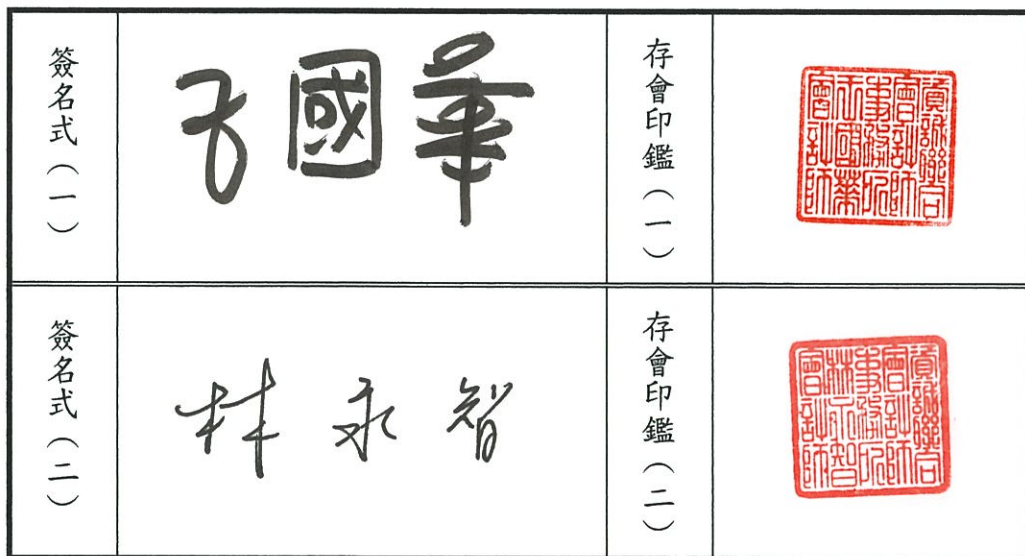 簽名式（一）
王國華
存會印鑑（一）
資誠聯合
會計師
事務所
王國華
會計師
簽名式（二）
林永智
存會印鑑（二）
資誠聯合
會計師
事務所
林永智
會計師